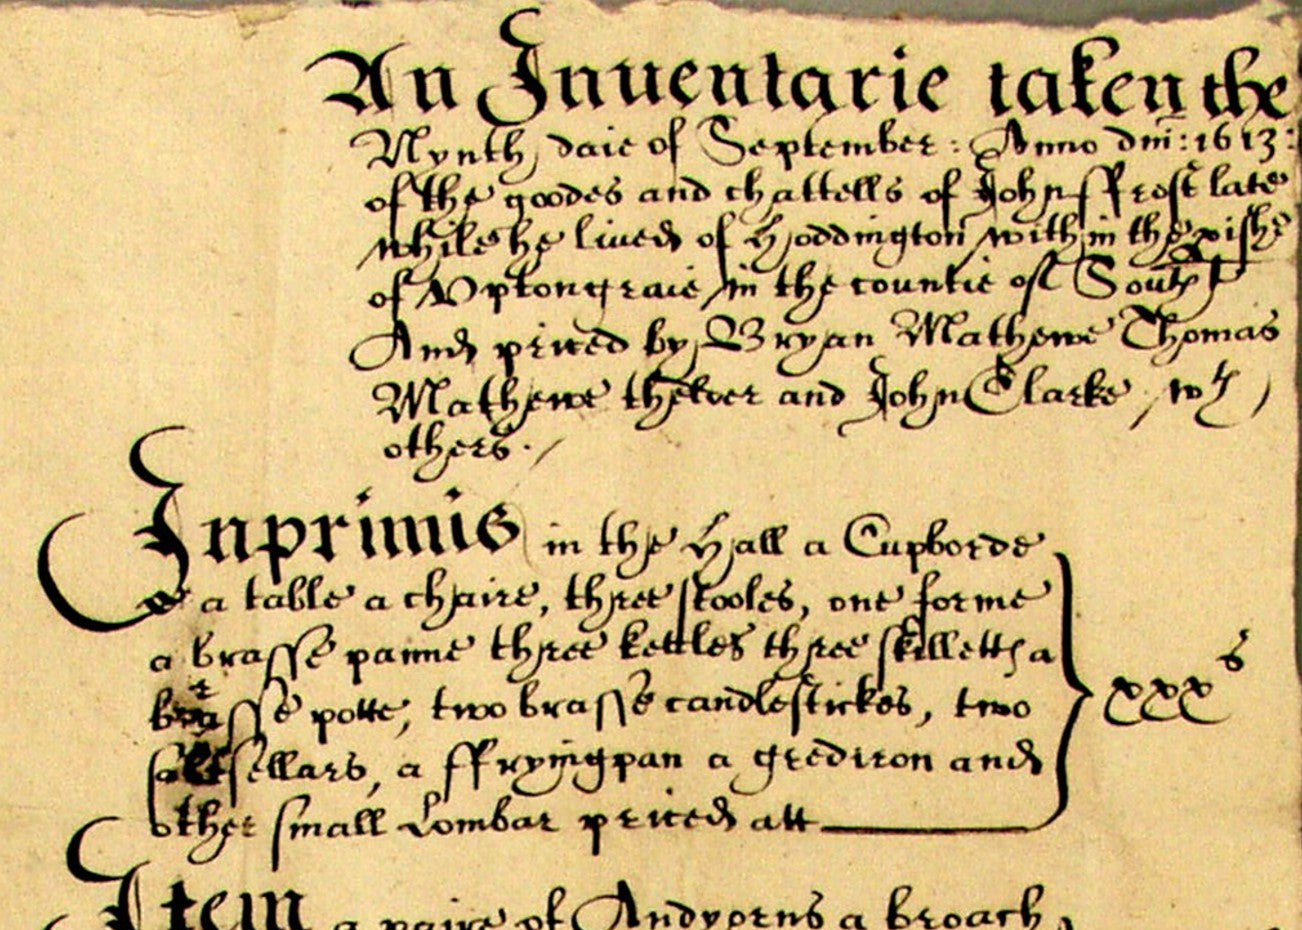 An Inventarie taken the
Nynth daie of September : Anno dm̄ : 1613 :
of the goodes and chattells of John ffrost late
while he lived of Hoddington within the pishe
of Uptongraie in the countie of South̄t
And priced by Bryan Mathewe Thomas
Mathewe thelder and John Clarke, wth
others ./
Inprimis in the Hall a Cupborde
a table a chaire, three stooles, one forme
a brasse panne three kettles three skilletts a
brasse potte, two brasse candlestickes, two
saltsellars, a ffryingpan a grediron and
other small Lombar priced att
xxxs
Item a paire of Andyorns a broach